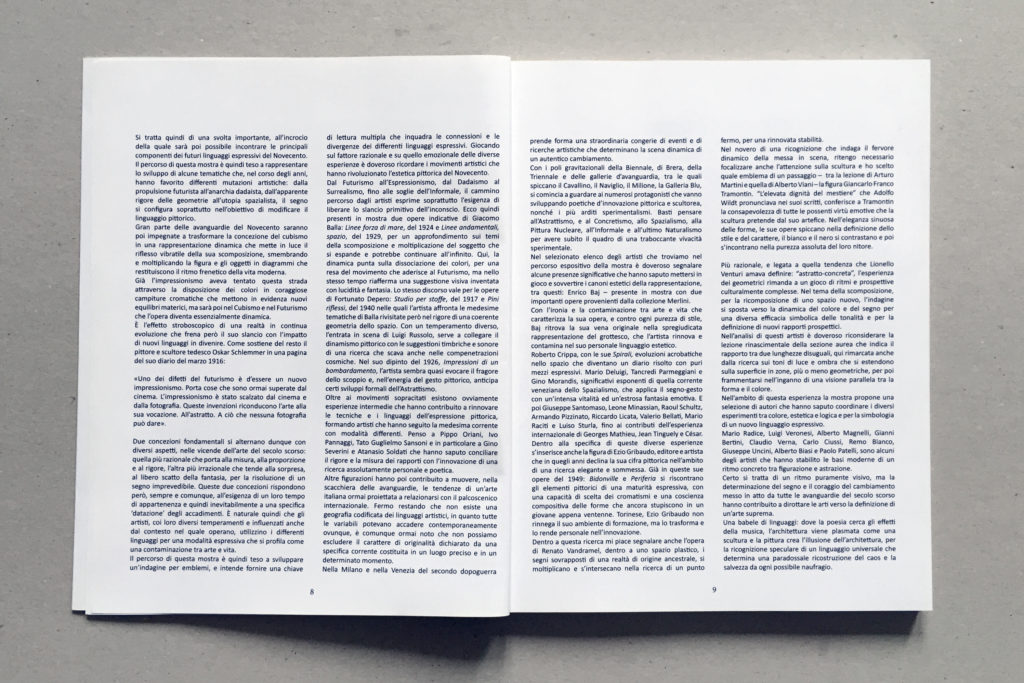 Si tratta quindi di una svolta importante, all'incrocio
della quale sarà poi possibile incontrare le principali
componenti dei futuri linguaggi espressivi del Novecento.
Il percorso di questa mostra è quindi teso a rappresentare
lo sviluppo di alcune tematiche che, nel corso degli anni,
hanno favorito differenti mutazioni artistiche: dalla
propulsione futurista all'anarchia dadaista, dall'apparente
rigore delle geometrie all'utopia spazialista, il segno
si configura soprattutto nell'obiettivo di modificare il
linguaggio pittorico.
Gran parte delle avanguardie del Novecento saranno
poi impegnate a trasformare la concezione del cubismo
in una rappresentazione dinamica che mette in luce il
riflesso vibratile della sua scomposizione, smembrando
e moltiplicando la figura e gli oggetti in diagrammi che
restituiscono il ritmo frenetico della vita moderna.
Già l'impressionismo aveva tentato questa strada
attraverso la disposizione dei colori in coraggiose
campiture cromatiche che mettono in evidenza nuovi
equilibri materici, ma sarà poi nel Cubismo e nel Futurismo
che l'opera diventa essenzialmente dinamica.
È l'effetto stroboscopico di una realtà in continua
evoluzione che frena però il suo slancio con l'impatto
di nuovi linguaggi in divenire. Come sostiene del resto il
pittore e scultore tedesco Oskar Schlemmer in una pagina
del suo diario del marzo 1916:
«Uno dei difetti del futurismo è d'essere un nuovo
impressionismo. Porta cose che sono ormai superate dal
cinema. L'impressionismo è stato scalzato dal cinema e
dalla fotografia. Queste invenzioni riconducono l'arte alla
sua vocazione. All'astratto. A ciò che nessuna fotografia
può dare».
Due concezioni fondamentali si alternano dunque con
diversi aspetti, nelle vicende dell'arte del secolo scorso:
quella più razionale che porta alla misura, alla proporzione
e al rigore, l'altra più irrazionale che tende alla sorpresa,
al libero scatto della fantasia, per la risoluzione di un
segno imprevedibile. Queste due concezioni rispondono
però, sempre e comunque, all'esigenza di un loro tempo
di appartenenza e quindi inevitabilmente a una specifica
'datazione' degli accadimenti. È naturale quindi che gli
artisti, coi loro diversi temperamenti e influenzati anche
dal contesto nel quale operano, utilizzino i differenti
linguaggi per una modalità espressiva che si profila come
una contaminazione tra arte e vita.
Il percorso di questa mostra è quindi teso a sviluppare
un'indagine per emblemi, e intende fornire una chiave
di lettura multipla che inquadra le connessioni e le
divergenze dei differenti linguaggi espressivi. Giocando
sul fattore razionale e su quello emozionale delle diverse
esperienze è doveroso ricordare i movimenti artistici che
hanno rivoluzionato l'estetica pittorica del Novecento.
Dal Futurismo all'Espressionismo, dal Dadaismo al
Surrealismo, fino alle soglie dell'Informale, il cammino
percorso dagli artisti esprime soprattutto l'esigenza di
liberare lo slancio primitivo dell'inconscio. Ecco quindi
presenti in mostra due opere indicative di Giacomo
Balla: Linee forza di mare, del 1924 e Linee andamentali,
spazio, del 1929, per un approfondimento sui temi
della scomposizione e moltiplicazione del soggetto che
si espande e potrebbe continuare all'infinito. Qui, la
dinamica punta sulla dissociazione dei colori, per una
resa del movimento che aderisce al Futurismo, ma nello
stesso tempo riafferma una suggestione visiva inventata
con lucidità e fantasia. Lo stesso discorso vale per le opere
di Fortunato Depero: Studio per stoffe, del 1917 e Pini
riflessi, del 1940 nelle quali l'artista affronta le medesime
tematiche di Balla rivisitate però nel rigore di una coerente
geometria dello spazio. Con un temperamento diverso,
l'entrata in scena di Luigi Russolo, serve a collegare il
dinamismo pittorico con le suggestioni timbriche e sonore
di una ricerca che scava anche nelle compenetrazioni
cosmiche. Nel suo dipinto del 1926, Impressioni di un
bombardamento, l'artista sembra quasi evocare il fragore
dello scoppio e, nell'energia del gesto pittorico, anticipa
certi sviluppi formali dell'Astrattismo.
Oltre ai movimenti sopracitati esistono ovviamente
esperienze intermedie che hanno contribuito a rinnovare
le tecniche e i linguaggi dell'espressione pittorica,
formando artisti che hanno seguito la medesima corrente
con modalità differenti. Penso a Pippo Oriani, Ivo
Pannaggi, Tato Guglielmo Sansoni e in particolare a Gino
Severini e Atanasio Soldati che hanno saputo conciliare
il rigore e la misura dei rapporti con l'innovazione di una
ricerca assolutamente personale e poetica.
Altre figurazioni hanno poi contribuito a muovere, nella
scacchiera delle avanguardie, le tendenze di un'arte
italiana ormai proiettata a relazionarsi con il palcoscenico
internazionale. Fermo restando che non esiste una
geografia codificata dei linguaggi artistici, in quanto tutte
le variabili potevano accadere contemporaneamente
ovunque, è comunque ormai noto che non possiamo
escludere il carattere di originalità dichiarato da una
specifica corrente costituita in un luogo preciso e in un
determinato momento.
Nella Milano e nella Venezia del secondo dopoguerra
8
prende forma una straordinaria congerie di eventi e di
ricerche artistiche che determinano la scena dinamica di
un autentico cambiamento.
Con i poli gravitazionali della Biennale, di Brera, della
Triennale e delle gallerie d'avanguardia, tra le quali
spiccano il Cavallino, il Naviglio, il Milione, la Galleria Blu,
si comincia a guardare ai numerosi protagonisti che vanno
sviluppando poetiche d'innovazione pittorica e scultorea,
nonché i più arditi sperimentalismi. Basti pensare
all'Astrattismo, e al Concretismo, allo Spazialismo, alla
Pittura Nucleare, all'Informale e all'ultimo Naturalismo
per avere subito il quadro di una traboccante vivacità
sperimentale.
Nel selezionato elenco degli artisti che troviamo nel
percorso espositivo della mostra è doveroso segnalare
alcune presenze significative che hanno saputo mettersi in
gioco e sovvertire i canoni estetici della rappresentazione,
tra questi: Enrico Baj – presente in mostra con due
importanti opere provenienti dalla collezione Merlini.
Con l'ironia e la contaminazione tra arte e vita che
caratterizza la sua opera, e contro ogni purezza di stile,
Baj ritrova la sua vena originale nella spregiudicata
rappresentazione del grottesco, che l'artista rinnova e
contamina nel suo personale linguaggio estetico.
Roberto Crippa, con le sue Spirali, evoluzioni acrobatiche
nello spazio che diventano un diario risolto con puri
mezzi espressivi. Mario Deluigi, Tancredi Parmeggiani e
Gino Morandis, significativi esponenti di quella corrente
veneziana dello Spazialismo, che applica il segno-gesto
con un'intensa vitalità ed un'estrosa fantasia emotiva. E
poi Giuseppe Santomaso, Leone Minassian, Raoul Schultz,
Armando Pizzinato, Riccardo Licata, Valerio Bellati, Mario
Raciti e Luiso Sturla, fino ai contributi dell'esperienza
internazionale di Georges Mathieu, Jean Tinguely e César.
Dentro alla specifica di queste diverse esperienze
s'inserisce anche la figura di Ezio Gribaudo, editore e artista
che in quegli anni declina la sua cifra pittorica nell'ambito
di una ricerca elegante e sommessa. Già in queste sue
opere del 1949: Bidonville e Periferia si riscontrano
gli elementi pittorici di una maturità espressiva, con
una capacità di scelta dei cromatismi e una coscienza
compositiva delle forme che ancora stupiscono in un
giovane appena ventenne. Torinese, Ezio Gribaudo non
rinnega il suo ambiente di formazione, ma lo trasforma e
lo rende personale nell'innovazione.
Dentro a questa ricerca mi piace segnalare anche l'opera
di Renato Vandramel, dentro a uno spazio plastico, i
segni sovrapposti di una realtà di origine ancestrale, si
moltiplicano e s'intersecano nella ricerca di un punto
fermo, per una rinnovata stabilità.
Nel novero di una ricognizione che indaga il fervore
dinamico della messa in scena, ritengo necessario
focalizzare anche l'attenzione sulla scultura e ho scelto
quale emblema di un passaggio – tra la lezione di Arturo
Martini e quella di Alberto Viani – la figura Giancarlo Franco
Tramontin. "L'elevata dignità del mestiere" che Adolfo
Wildt pronunciava nei suoi scritti, conferisce a Tramontin
la consapevolezza di tutte le possenti virtù emotive che la
scultura pretende dal suo artefice. Nell'eleganza sinuosa
delle forme, le sue opere spiccano nella definizione dello
stile e del carattere, il bianco e il nero si contrastano e poi
s'incontrano nella purezza assoluta del loro nitore.
Più razionale, e legata a quella tendenza che Lionello
Venturi amava definire: "astratto-concreta", l'esperienza
dei geometrici rimanda a un gioco di ritmi e prospettive
culturalmente complesse. Nel tema della scomposizione,
per la ricomposizione di uno spazio nuovo, l'indagine
si sposta verso la dinamica del colore e del segno per
una diversa efficacia simbolica delle tonalità e per la
definizione di nuovi rapporti prospettici.
Nell'analisi di questi artisti è doveroso riconsiderare la
lezione rinascimentale della sezione aurea che indica il
rapporto tra due lunghezze disuguali, qui rimarcata anche
dalla ricerca sui toni di luce e ombra che si estendono
sulla superficie in zone, più o meno geometriche, per poi
frammentarsi nell'inganno di una visione parallela tra la
forma e il colore.
Nell'ambito di questa esperienza la mostra propone una
selezione di autori che hanno saputo coordinare i diversi
esperimenti tra colore, estetica e logica e per la simbologia
di un nuovo linguaggio espressivo.
Mario Radice, Luigi Veronesi, Alberto Magnelli, Gianni
Bertini, Claudio Verna, Carlo Ciussi, Remo Bianco,
Giuseppe Uncini, Alberto Biasi e Paolo Patelli, sono alcuni
degli artisti che hanno stabilito le basi moderne di un
ritmo concreto tra figurazione e astrazione.
Certo si tratta di un ritmo puramente visivo, ma la
determinazione del segno e il coraggio del cambiamento
messo in atto da tutte le avanguardie del secolo scorso
hanno contribuito a dirottare le arti verso la definizione di
un'arte suprema.
Una babele di linguaggi: dove la poesia cerca gli effetti
della musica, l'architettura viene plasmata come una
scultura e la pittura crea l'illusione dell'architettura, per
la ricognizione speculare di un linguaggio universale che
determina una paradossale ricostruzione del caos e la
salvezza da ogni possibile naufragio.
9